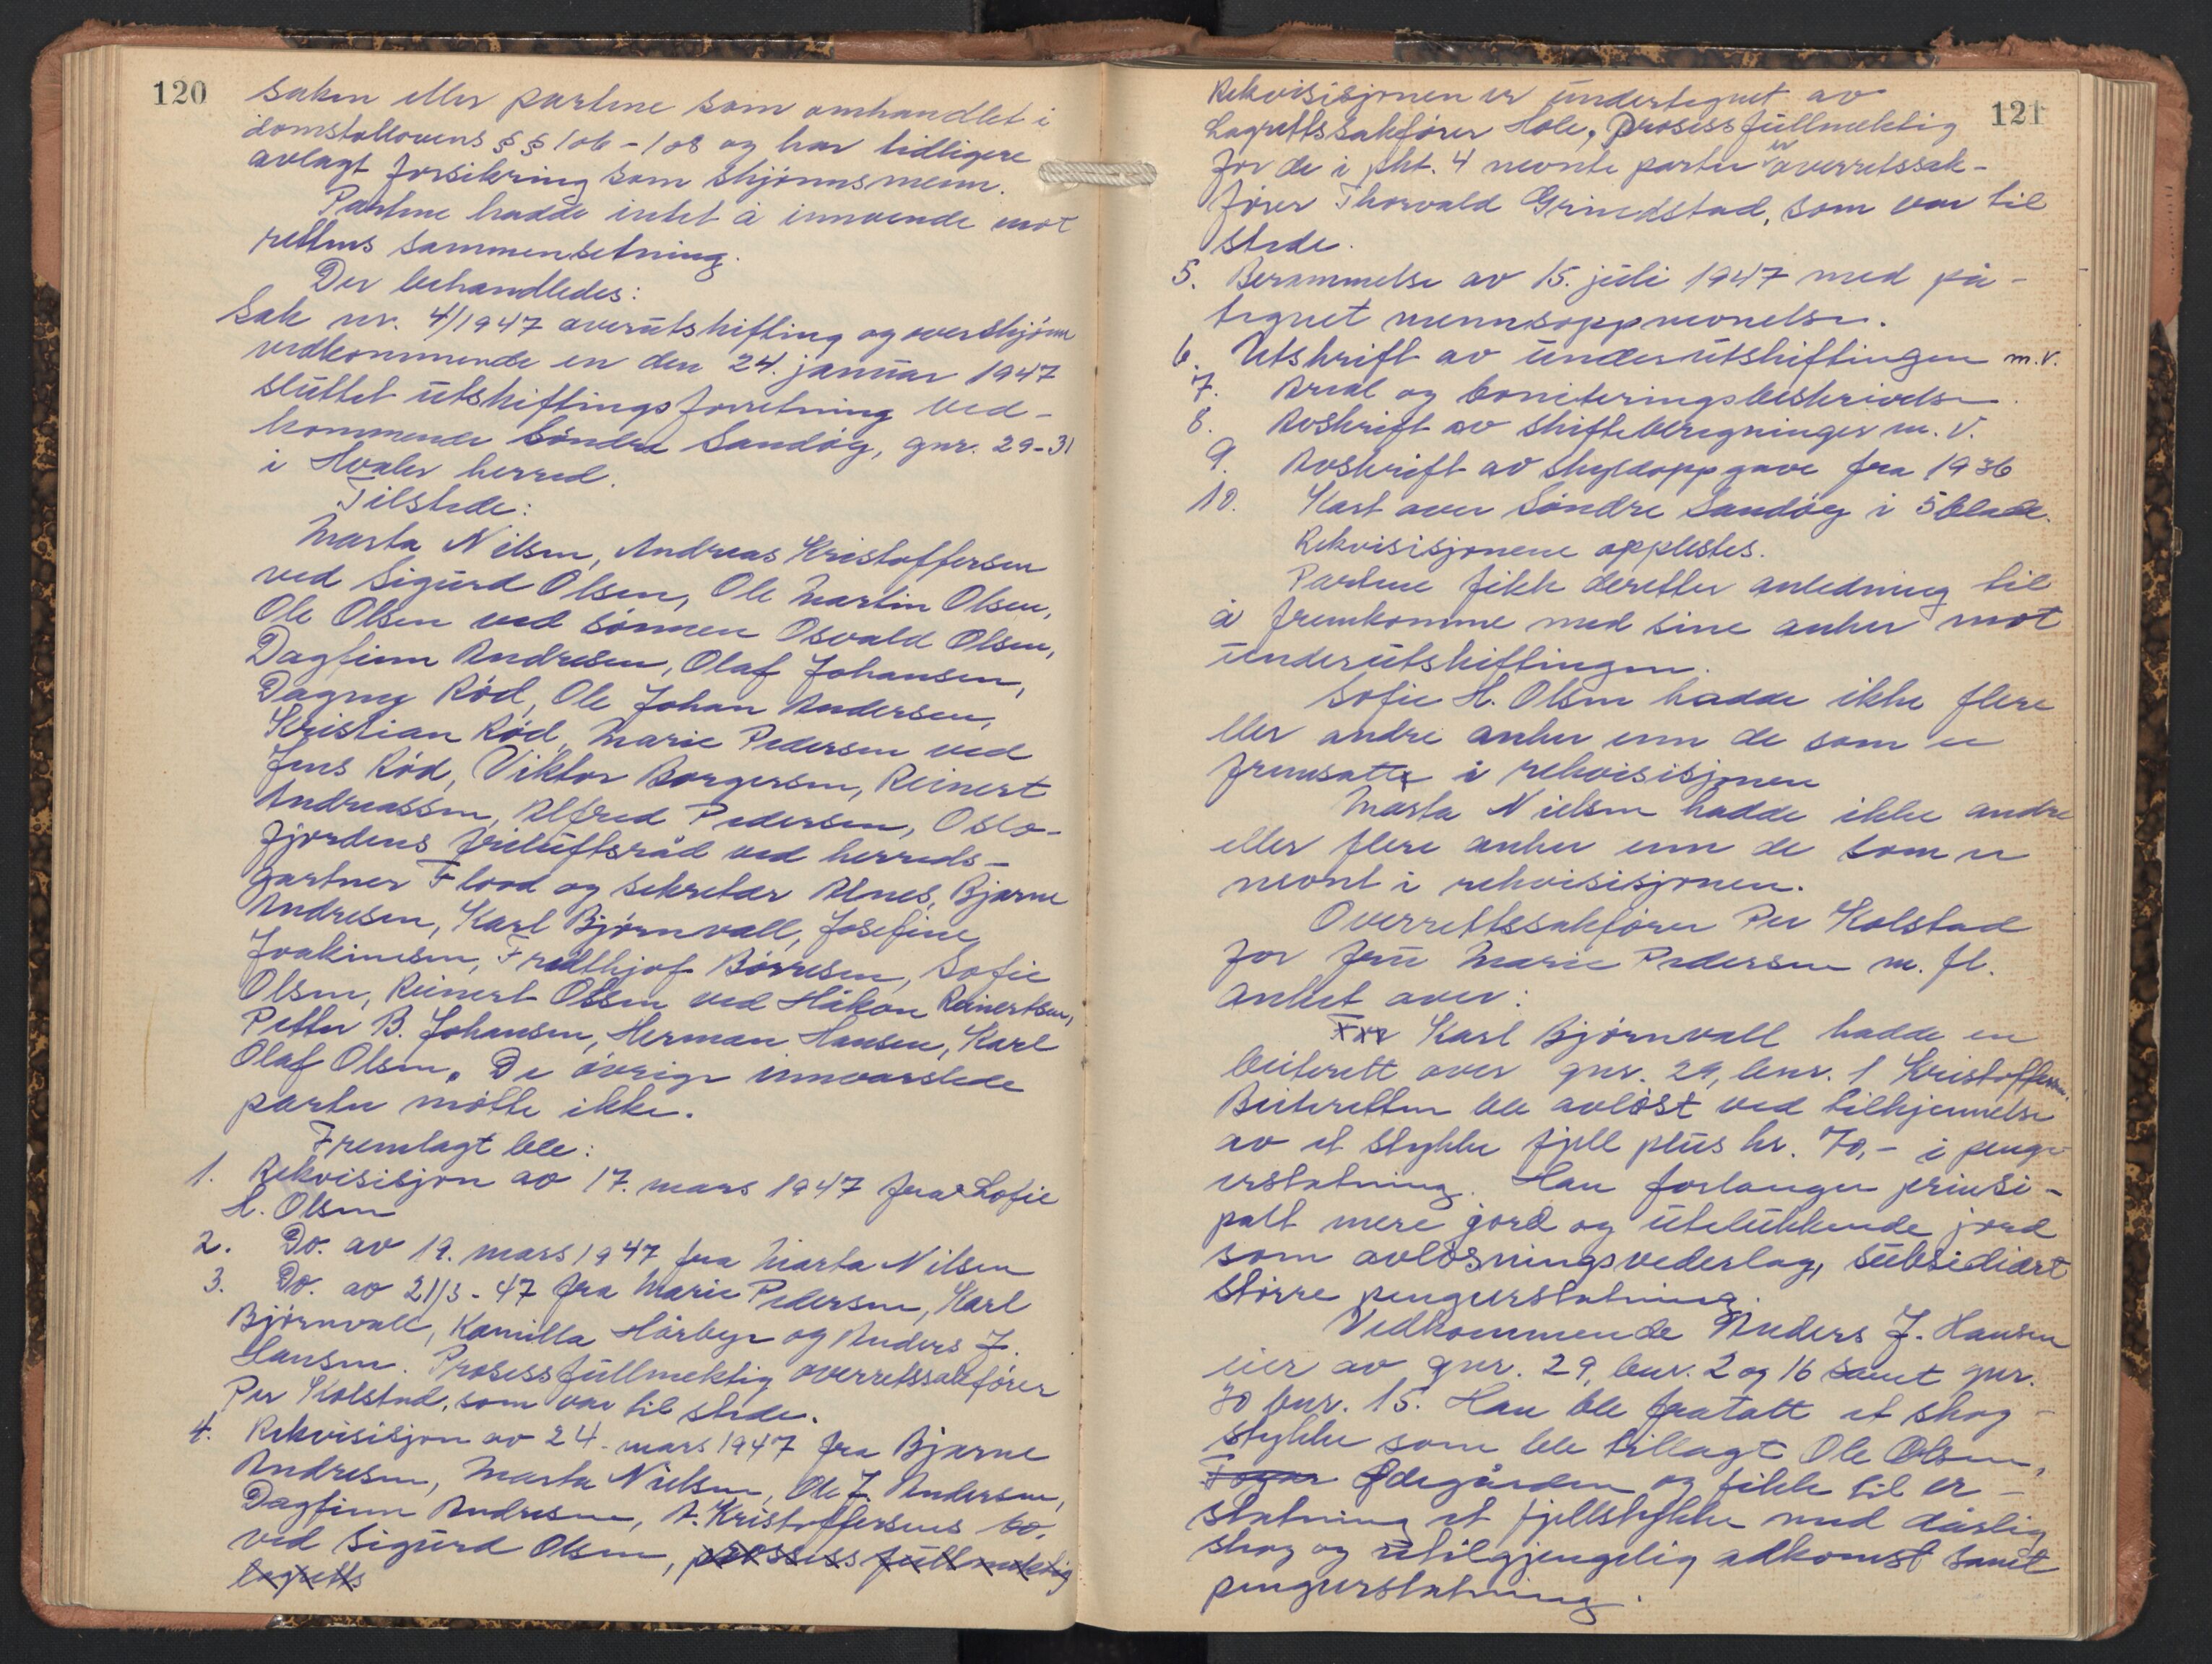 120
saken eller partene som omhandlet i
domstollovens §§ 106-108 og har tidligere
avlagt forsikring som skjønnsmenn.
Partene hadde intet å innvende mot
rettens sammensetning.
Der behandledes:
Sak nr. 4/1947 overutskifting og overskjønn
vedkommende en den 24. januar 1947
sluttet utskiftingsforretning ved-
kommende Søndre Sandøy, gnr. 29-31
i Hvaler herred.
Tilstede:
Marta Nilsen, Andreas Kristoffersen
ved Sigurd Olsen, Ole Martin Olsen,
Ole Olsen ved sønnen Osvald Olsen,
Dagfinn Andresen, Olaf Johansen,
Dagny Rød, Ole Johan Andersen,
Kristian Rød, Marie Pedersen ved
Jens Rød, Viktor Borgersen, Reinert
Andreassen, Alfred Pedersen, Oslo-
fjordens friluftsråd ved herreds-
gartner Flood og sekretær Alnes, Bjarne
Andresen, Karl Bjørnvall, Josefine
Joakimsen, Fredthjof Børresen, Sofie
Olsen, Reinert Olsen ved Håkon Reinertsen,
Petter B. Johansen, Herman Hansen, Karl
Olaf Olsen. De øvrige innvarslede
parter møtte ikke.
Fremlagt ble:
1. Rekvisisjon av 17. mars 1947 fra Sofie
H. Olsen
2. Do. av 19. mars 1947 fra Marta Nilsen
3. Do. av 21/3-47 fra Marie Pedersen, Karl
Bjørnvall, Kamilla Hårbye og Anders J.
Hansen. Prosessfullmektig overretssakfører
Per Kolstad, som var til stede.
4. Rekvisisjon av 24. mars 1947 fra Bjarne
Andresen, Marta Nielsen, Ole J. Andersen,
Dagfinn Andresen, A. Kristoffersens bo.
ved Sigurd Olsen, prosessfullmektig
lagretts
121
Rekvisisjonen er undertegnet av
Lagrettssakfører Hole, prosessfullmektig
for de i pkt. 4 nevnte parter er overretssak-
fører Thorvald Grindstad, som var til
stede.
5. Berammelse av 15. juli 1947 med på-
tegnet mennsoppnevnelse.
6. Utskrift av underutskiftingen m.v.
7. Areal og boniteringsbeskrivelse.
8. Avskrift av skifteberegninger m.v.
9. Avskrift av skyldoppgave fra 1936
10. Kart over Søndre Sandøy i 5 blade.
Rekvisisjonene opplestes.
Partene fikk deretter anledning til
å fremkomme med sine anker mot
underutskiftingen.
Sofie H. Olsen hadde ikke flere
eller andre anker enn de som er
fremsatt i rekvisisjonen
Marta Nielsen hadde ikke andre
eller flere anker enn de som er
nevnt i rekvisisjonen.
Overrettssakfører Per Kolstad
for fru Marie Pedersen m. fl.
anket over:
For Karl Bjørnvall hadde en
beiterett over gnr. 29, bnr. 1 Kristoffersen.
Beiteretten ble avløst ved tilkjennelse
av et stykke fjell plus kr. 70,- i penge-
erstatning. Han forlanger prinsi-
palt mere jord og utelukkende jord
som avløsningsvederlag, subsidiært
større pengeerstatning.
Vedkommende Anders J. Hansen
eier av gnr. 29, bnr. 2 og 16 samt gnr.
30 bnr. 15. Han ble fratatt et skog-
stykke som ble tillagt Ole Olsen,
Ødegården og fikk til er-
statning et fjellstykke med dårlig
skog og utilgjengelig adkomst samt
pengeerstatning.